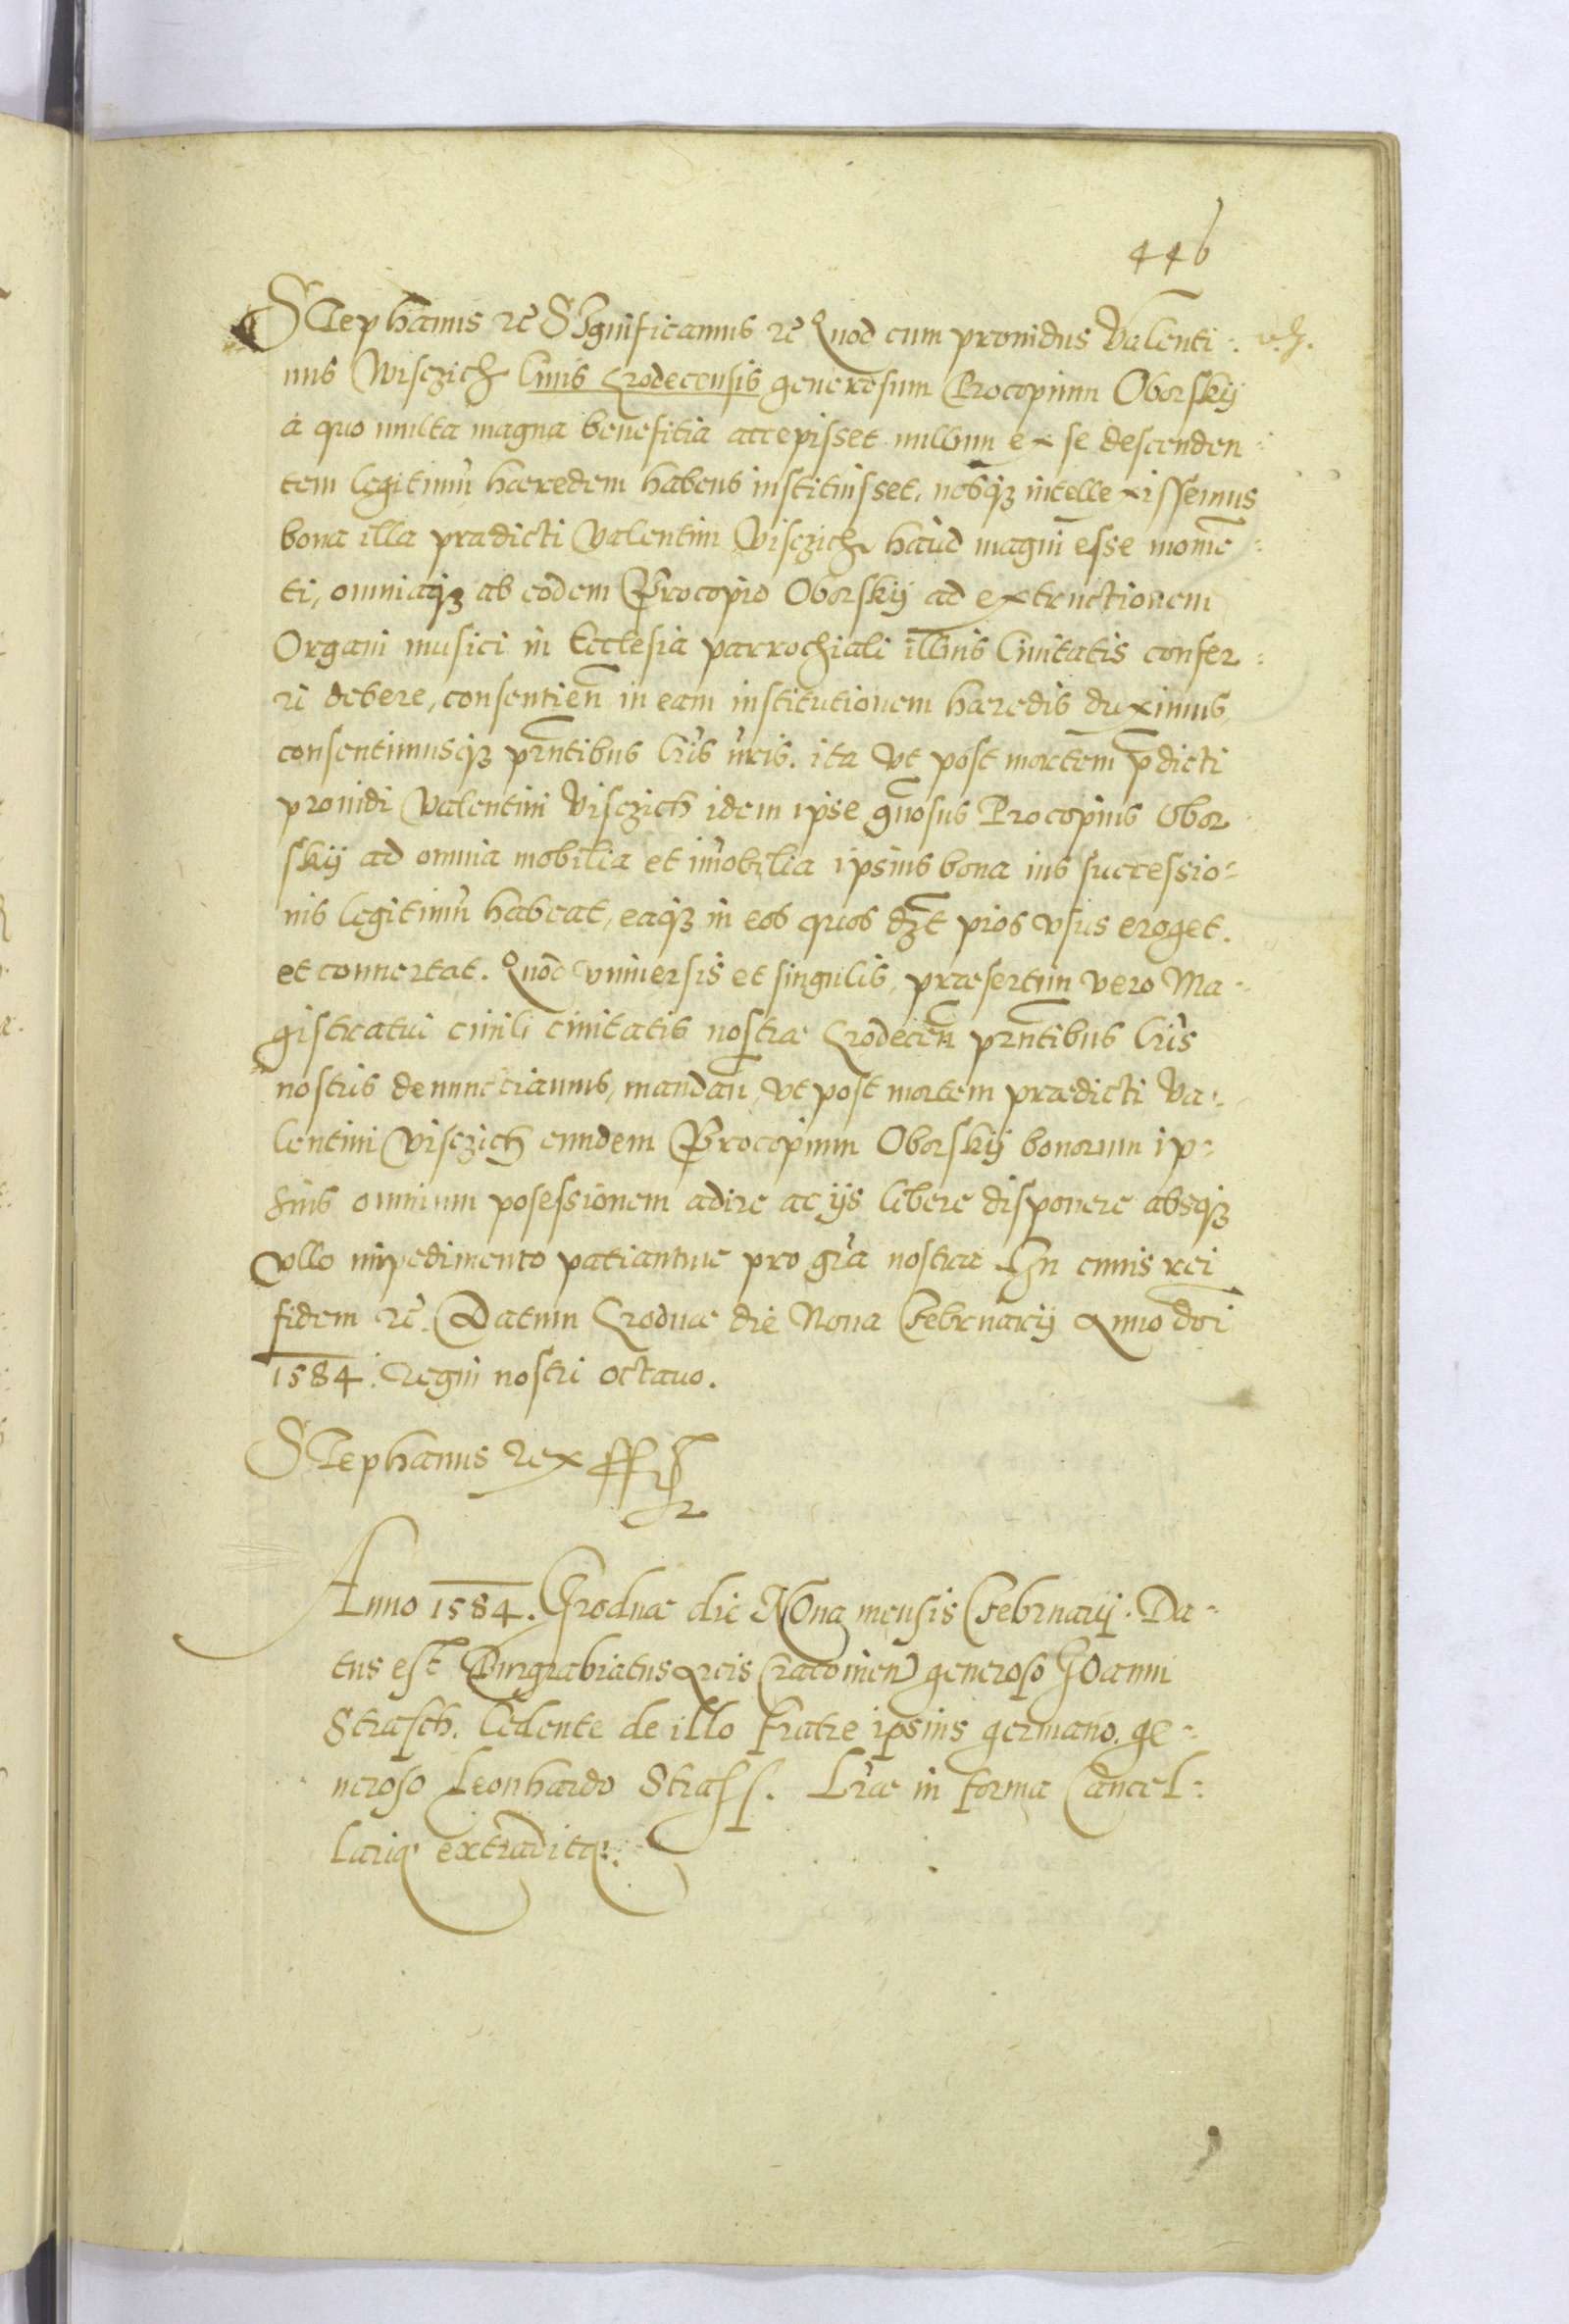 446
Stephanus rc̃ SIgnificamus rc̃ Quod cum prouidus Valenti:
nus Wisczich Ciuis Grodecensis generosum Procopium Oborskij
à quo multa magna benefitia accepisset nullum ex se descenden:
tem legitimũ haeredem habens instituisset, nobisqȝ intellexissemus
bona illa praedicti Valentini Visczich haùd magni esse momẽ:
ti, omniaqȝ ab eodem Procopio Oborskij ad extructionem
Organi musici in Ecclesia parrochiali illius Ciuitatis confer:
ri debere, consentieñ in eam institutionem haeredis duximus,
consentimusqȝ prñtibus lr̃is nr̃is. ita vt post mortem p̃dicti
prouidi Valentini Visczich idem ipse gñosus Procopius Obor
skij ad omnia mobilia et im̃obilia ipsius bona ius successio:
nis legitimũ habeat, eaqȝ in eos quos pios vsus eroget.
et conuertat. Quod vniuersis et singulis, praesertim vero Ma:
gistratui ciuili ciuitatis nostrae Grodeceñ prñtibus lr̃is
nostris denunctiamus, mandañ, vt post mortem praedicti Va:
lentini Visczich eundem Procopium Oborskij bonorum ip:
sius omnium posessionem adire ac ijs libere disponere absqȝ
vllo impedimento patiantur pro gr̃a nostra. In cuius rei
fidem rc̃. Datum Grodnae die Nona Februarij Anno dñi
1584. Regni nostri octauo.
Stephanus Rex
Anno 1584. Grodnae die NOna mensis Februarij. Da:
tus est Burgrabiatus Arcis Cracouieñ generoso IOanni
Strasch. Cedente de illo fratre ipsius germano. ge:
neroso Leonhardo Strass. Lr̃ae in forma Cancel:
lariae extraditae.